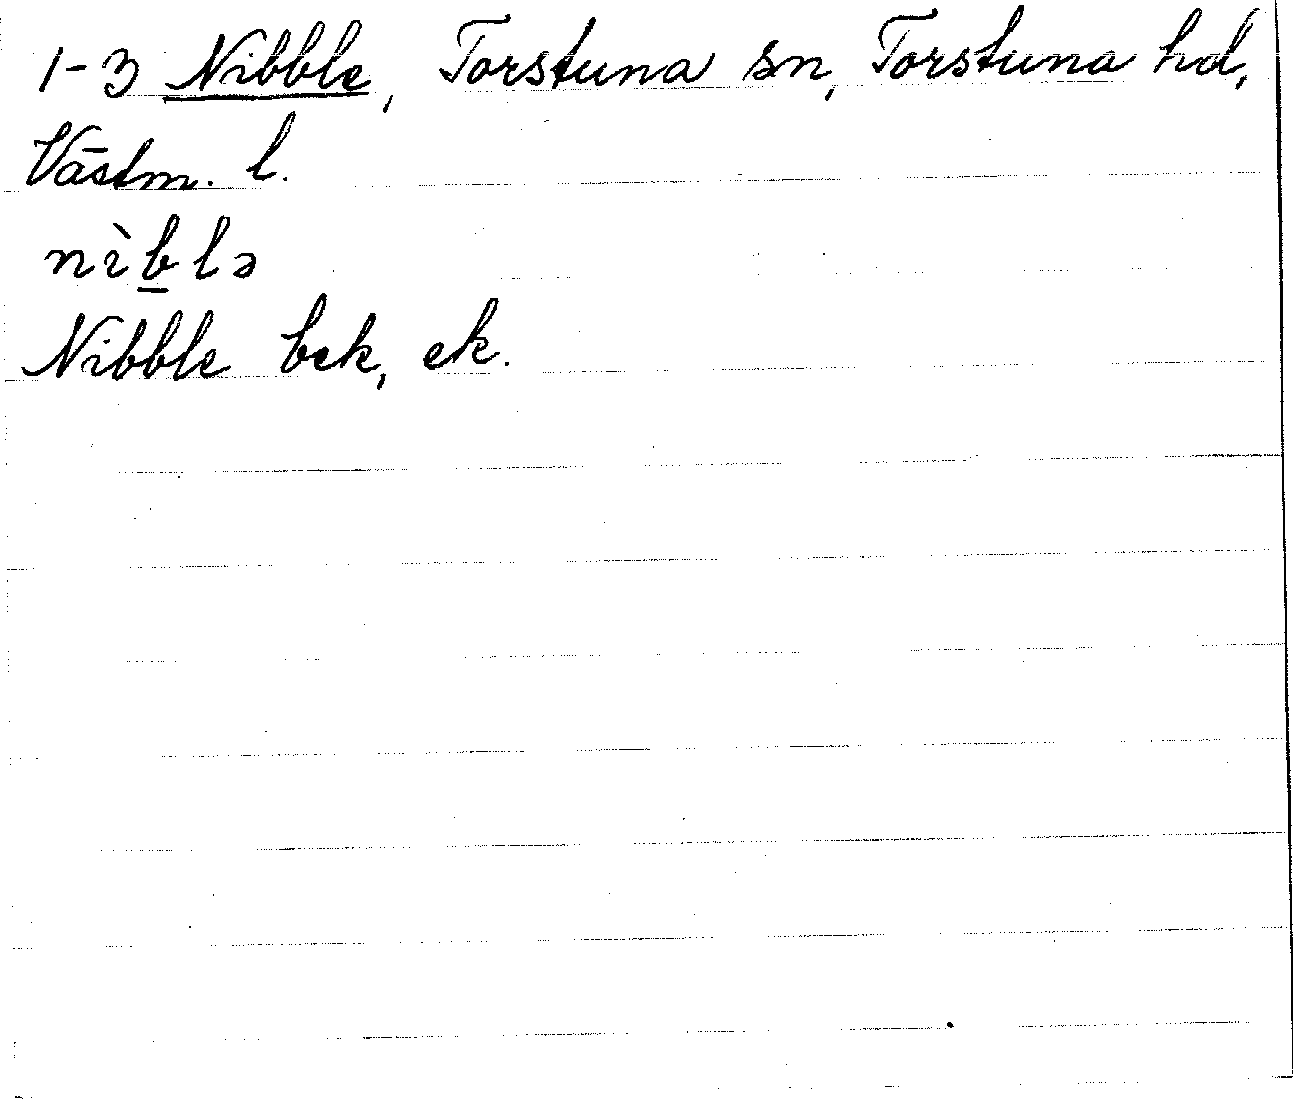 1-3 Nibble, Torstuna sn, Torstuna hd,
Västm. l.
nìb̲lə
Nibble bek, ek.